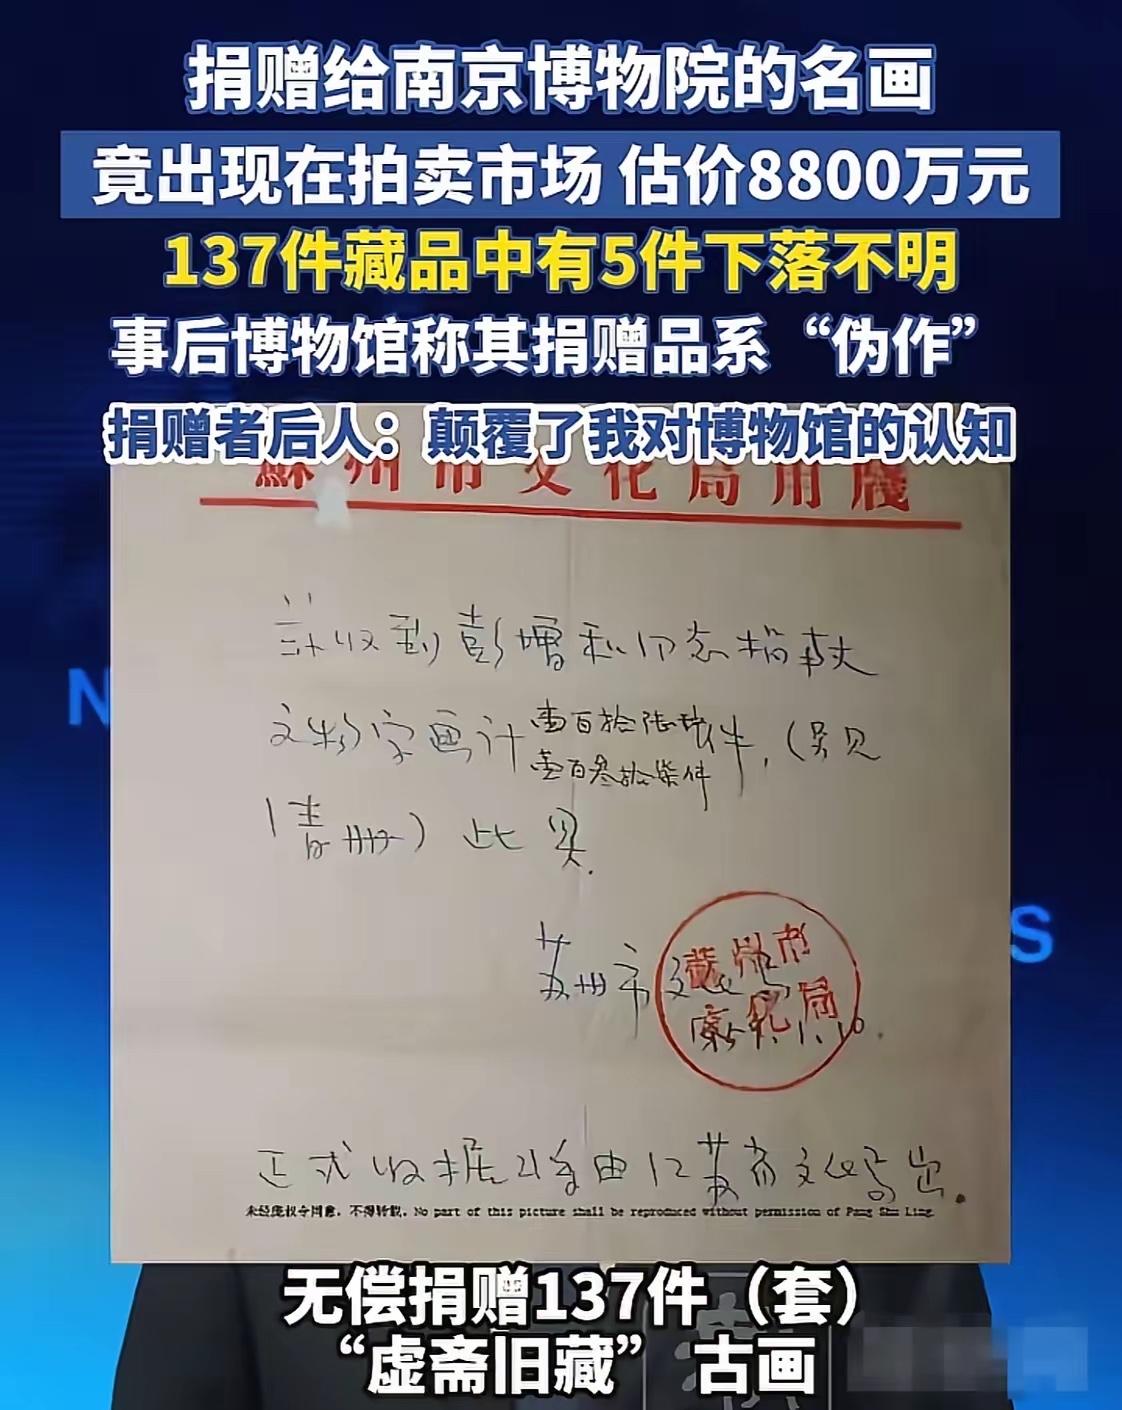 捐赠给南京博物院的名画
竟出现在拍卖市场 估价8800万元
137件藏品中有5件下落不明
事后博物馆称其捐赠品系“伪作”
捐赠者后人：颠覆了我对博物馆的认知
蘇州市文化局用牋
兹收到 同志捐献
文物字画计壹百拾陆 件，（另见
壹百叁拾柒件
清册）此具.
苏州市文化局
蘇州市
文化局
正式收据将由江苏省文化局出.
未经庞叔令同意，不得转载。No part of this picture shall be reproduced without permission of Pang Shu Ling.
N
S
无偿捐赠137件（套）
“虚斋旧藏” 古画